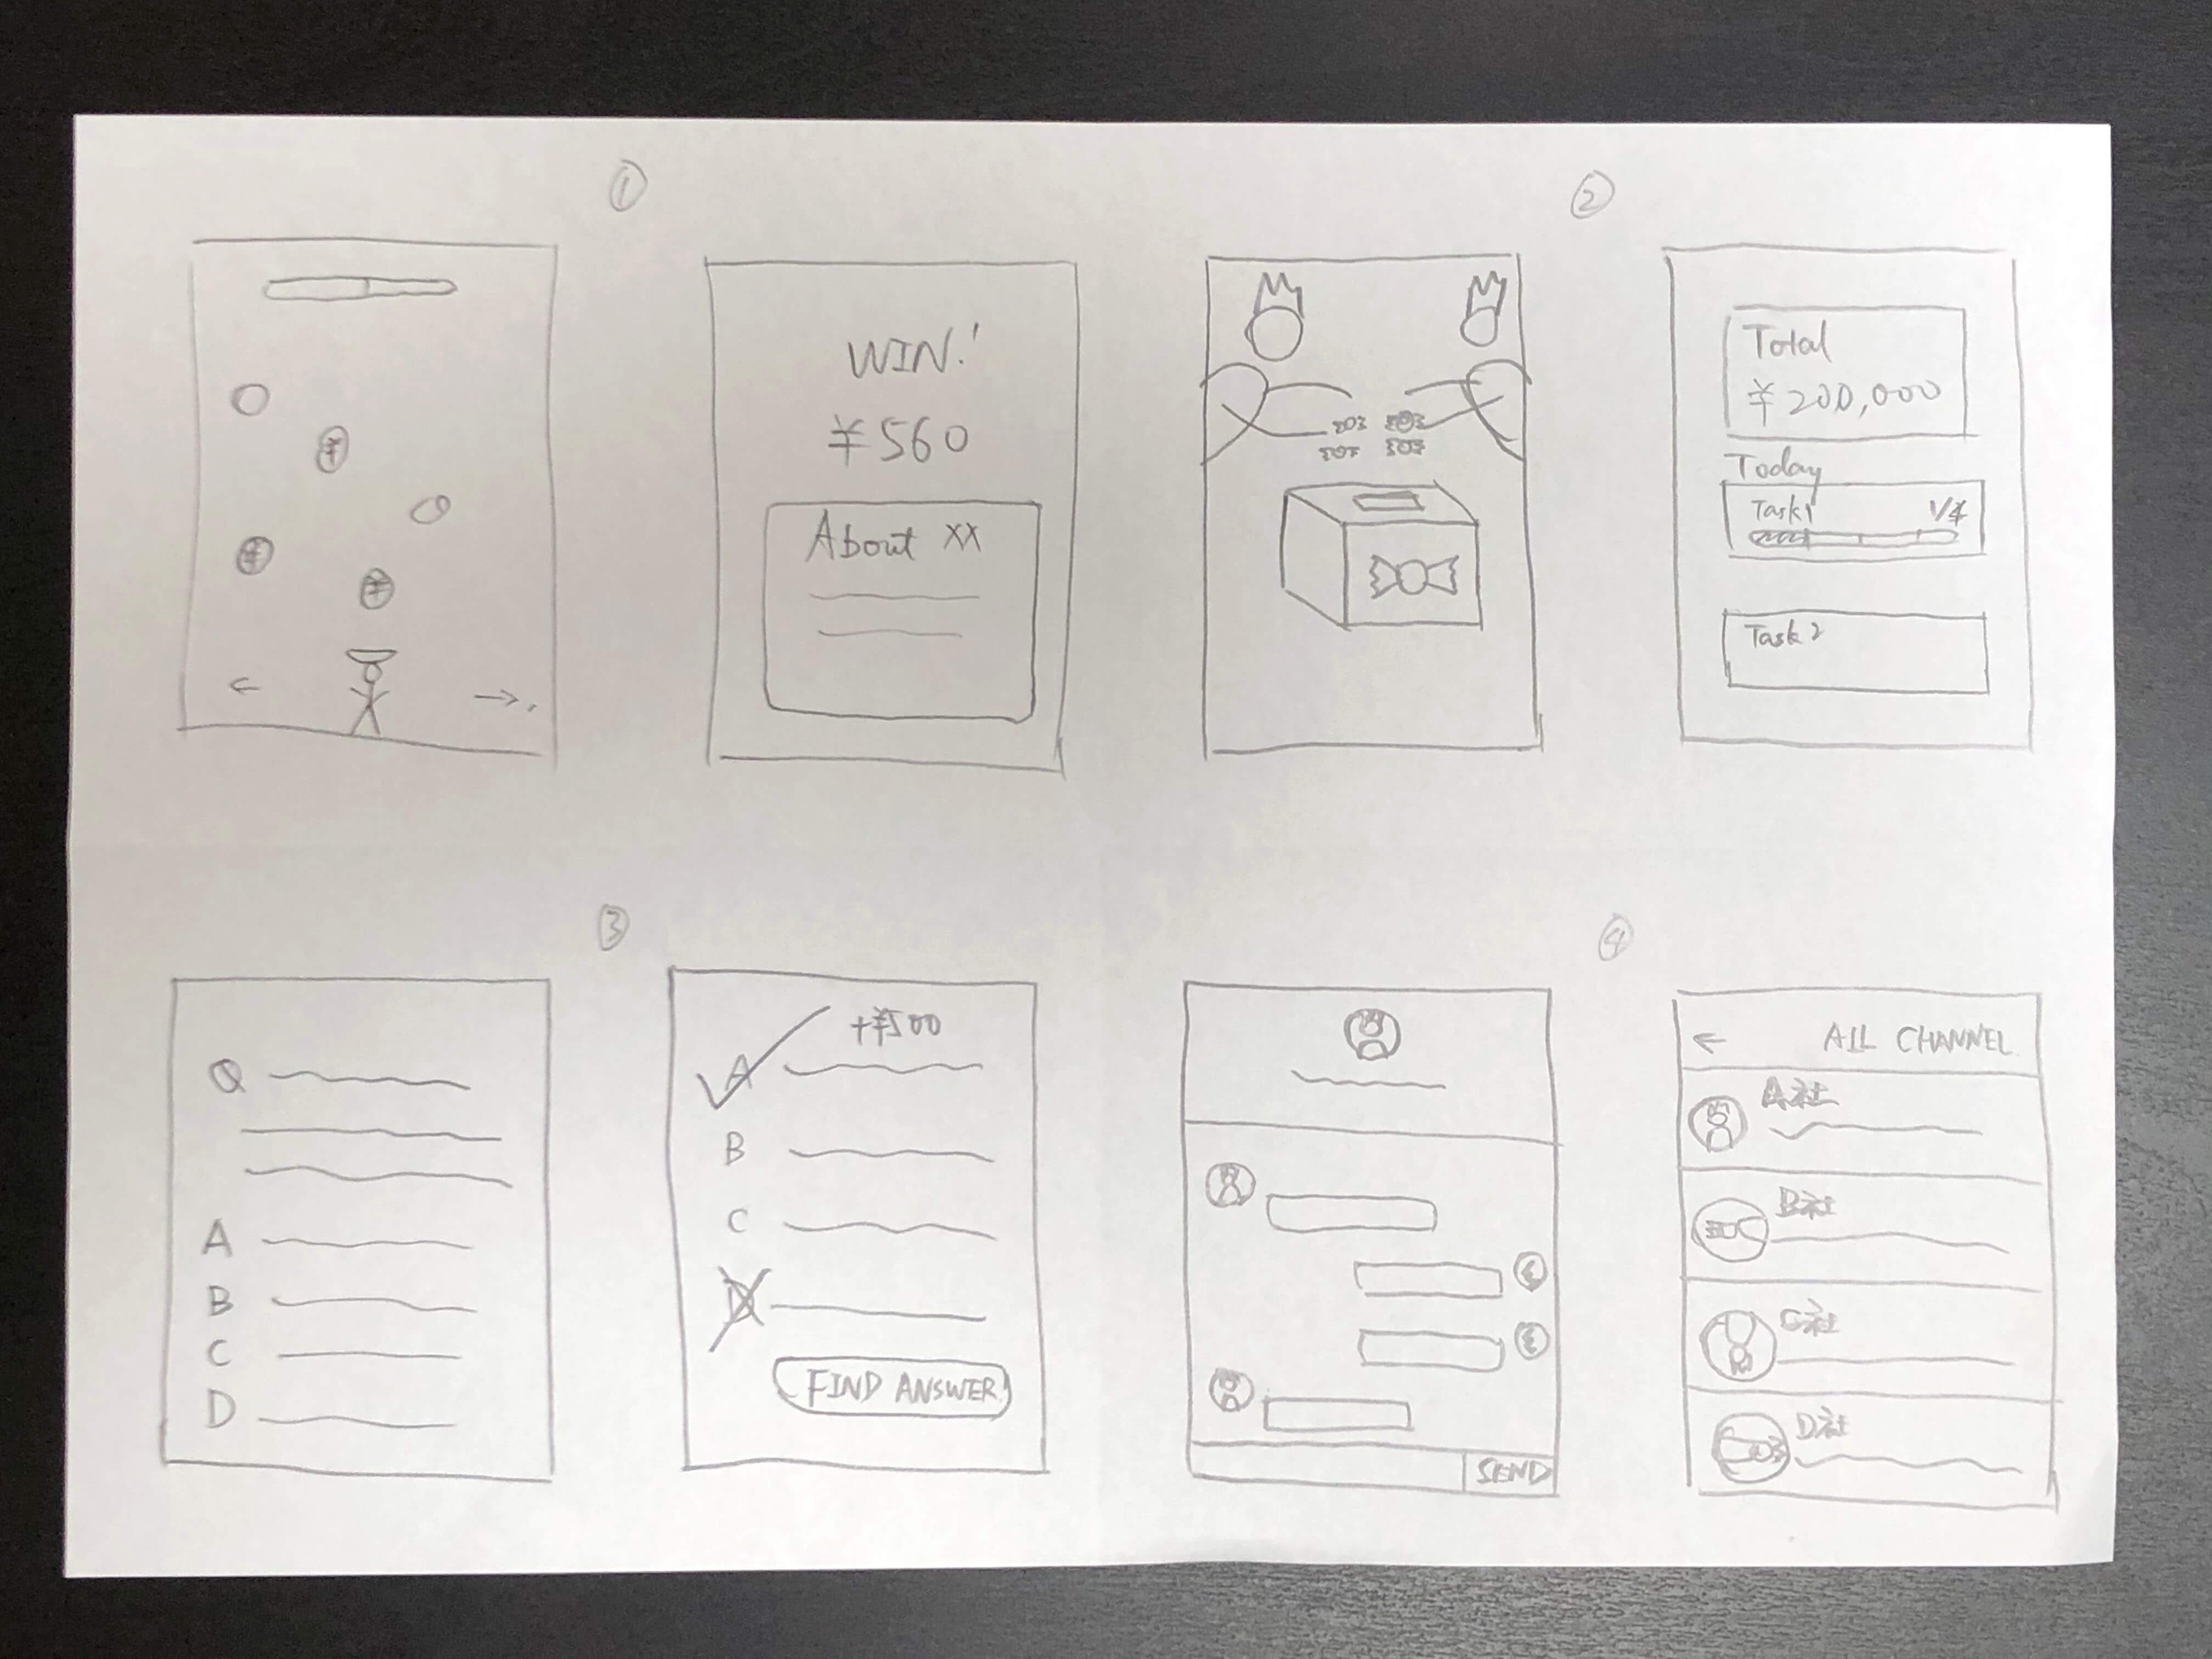 ①
②
¥
¥
¥
WIN!
¥560
About XX
Total
¥200,000
Today
Task1 1/4
Task2
③
④
Q
A
B
C
D
+¥500
A
B
C
D
FIND ANSWER
SEND
← ALL CHANNEL
A社
B社
C社
D社